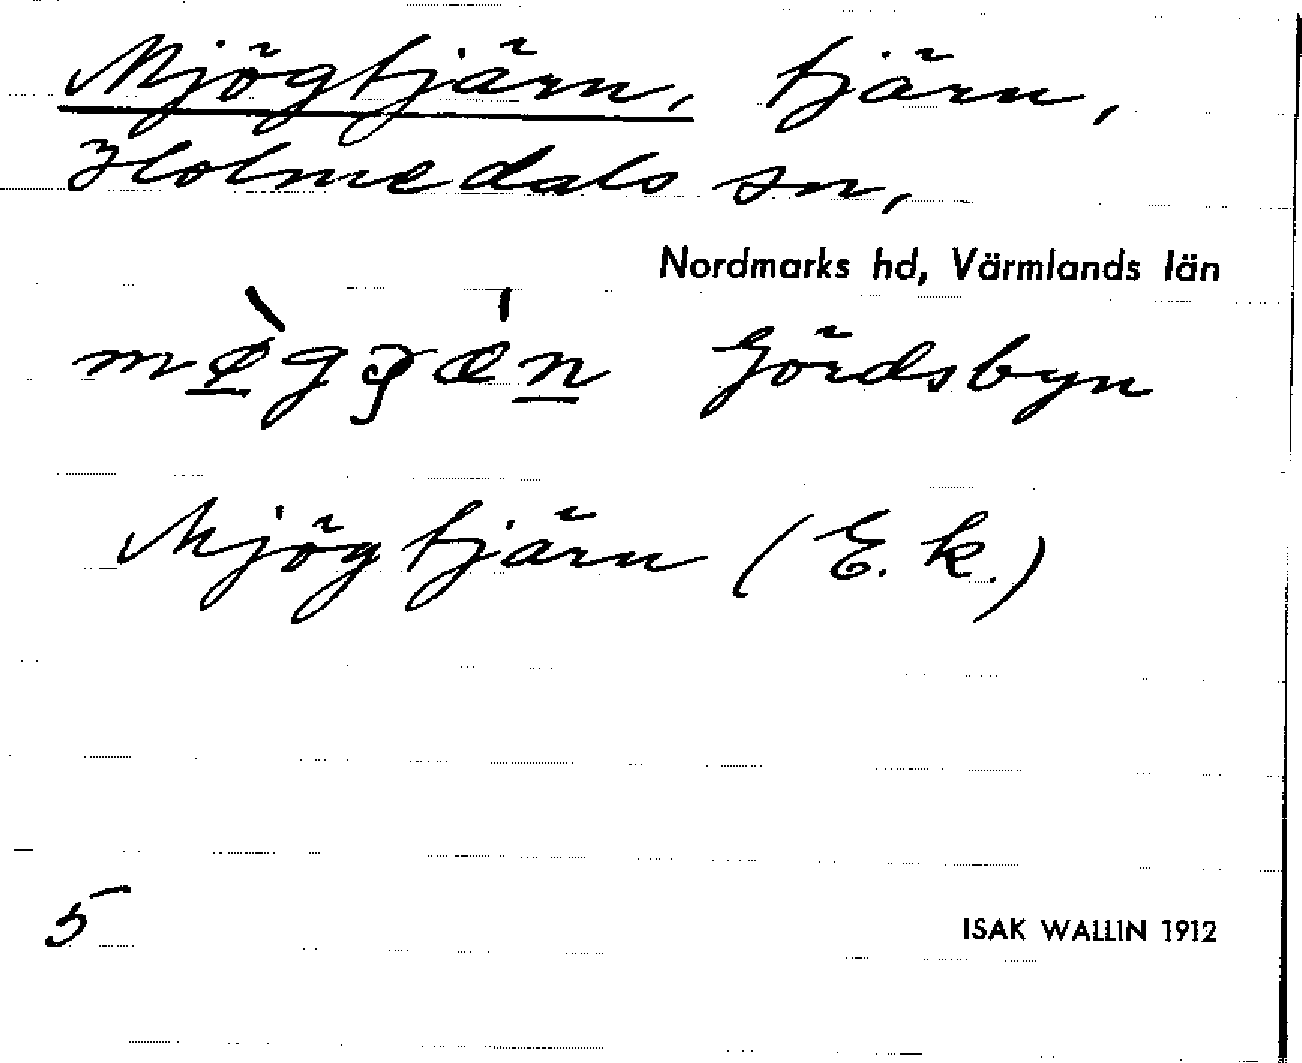 Mjögtjärn, tjärn,
Holmedals sn,
Nordmarks hd, Värmlands län
Gördsbyn
Mjögtjärn (E. k.)
5
ISAK WALLIN 1912